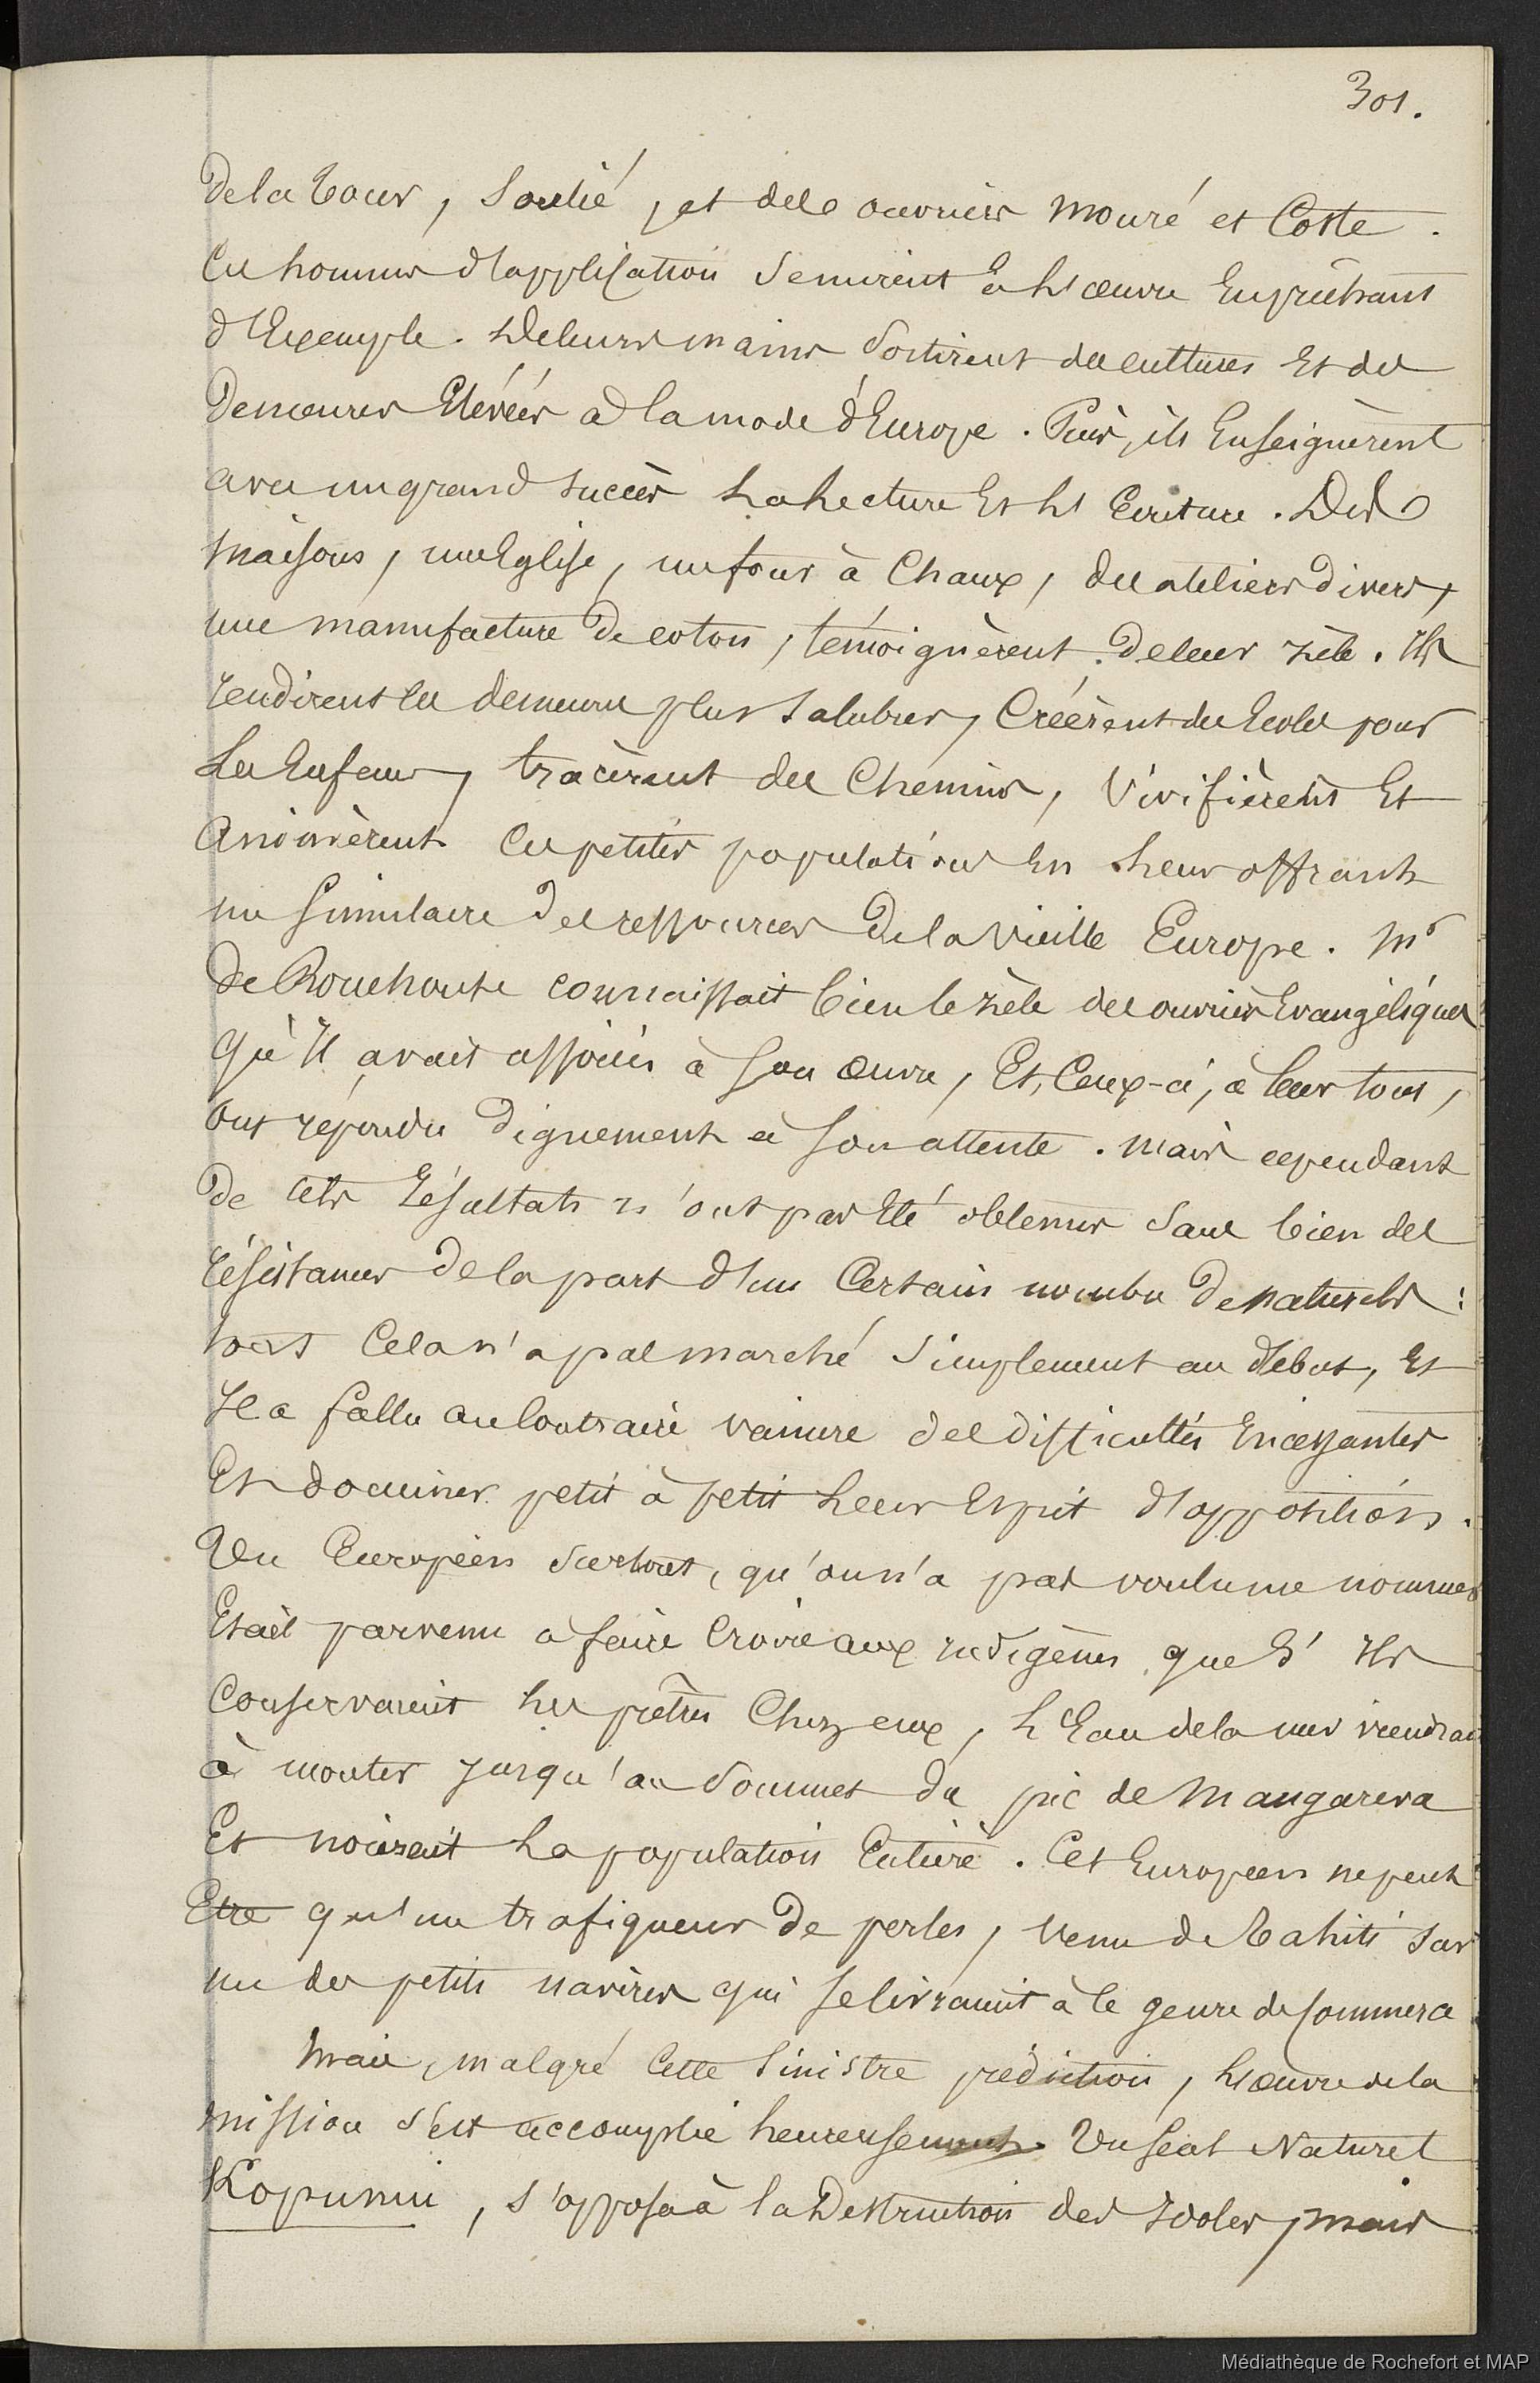 301.
de la Tour, Soulié, et des ouvriers Mouré et Costte.
Ces hommes d'application se mirent à l'œuvre en prêchant
d'Exemple. De leurs mains sortirent des cultures et des
Demeures Elevées à la mode d'Europe. Puis, ils Enseignèrent
avec un grand succès La Lecture Et L'Ecriture. Des
Maisons, une Eglise, un four à Chaux, des ateliers divers,
une manufacture de coton, témoignèrent de leur zèle. Ils
rendirent les demeures plus salubres, Créèrent des Ecoles pour
Les Enfans, tracèrent des Chemins, Vivifièrent Et
Animèrent Ces petites populations En Leur offrant
un Simulacre des ressources de la vieille Europe. Mr
de Rouchouse connaissait bien le zèle des ouvriers Evangéliques
qu'Il avait associés à Son œuvre, Et, Ceux-ci, à leur tour,
ont répondu Dignement à Son attente. Mais cependant
de tels Résultats n'ont pas Eté obtenus sans bien des
résistances de la part d'un Certain nombre de naturels :
tout Cela n'a pas marché Simplement au début, Et
Il a fallu au Contraire vaincre des difficultés Incessantes
Et dominer petit à petit Leur Esprit d'opposition.
Un Européen surtout, qu'on n'a pas voulu me nommer
Etait parvenu à faire Croire aux indigènes que S' Ils
Conservaient les prêtres Chez eux, L'Eau de la mer viendrait
à monter jusqu'au Sommet du pic de Mangareva
Et noierait La population Entière. Cet Européen ne peut
Etre qu'un trafiqueur de perles, venu de Tahiti sur
un des petits navires qui se livraient à ce genre de Commerce
Mais, malgré Cette Sinistre prédiction, L'œuvre de la
mission s'est accomplie heureusement. Un Seul Naturel
Kopunui, s'opposa à la Destruction des Idoles, mais
Médiathèque de Rochefort et MAP